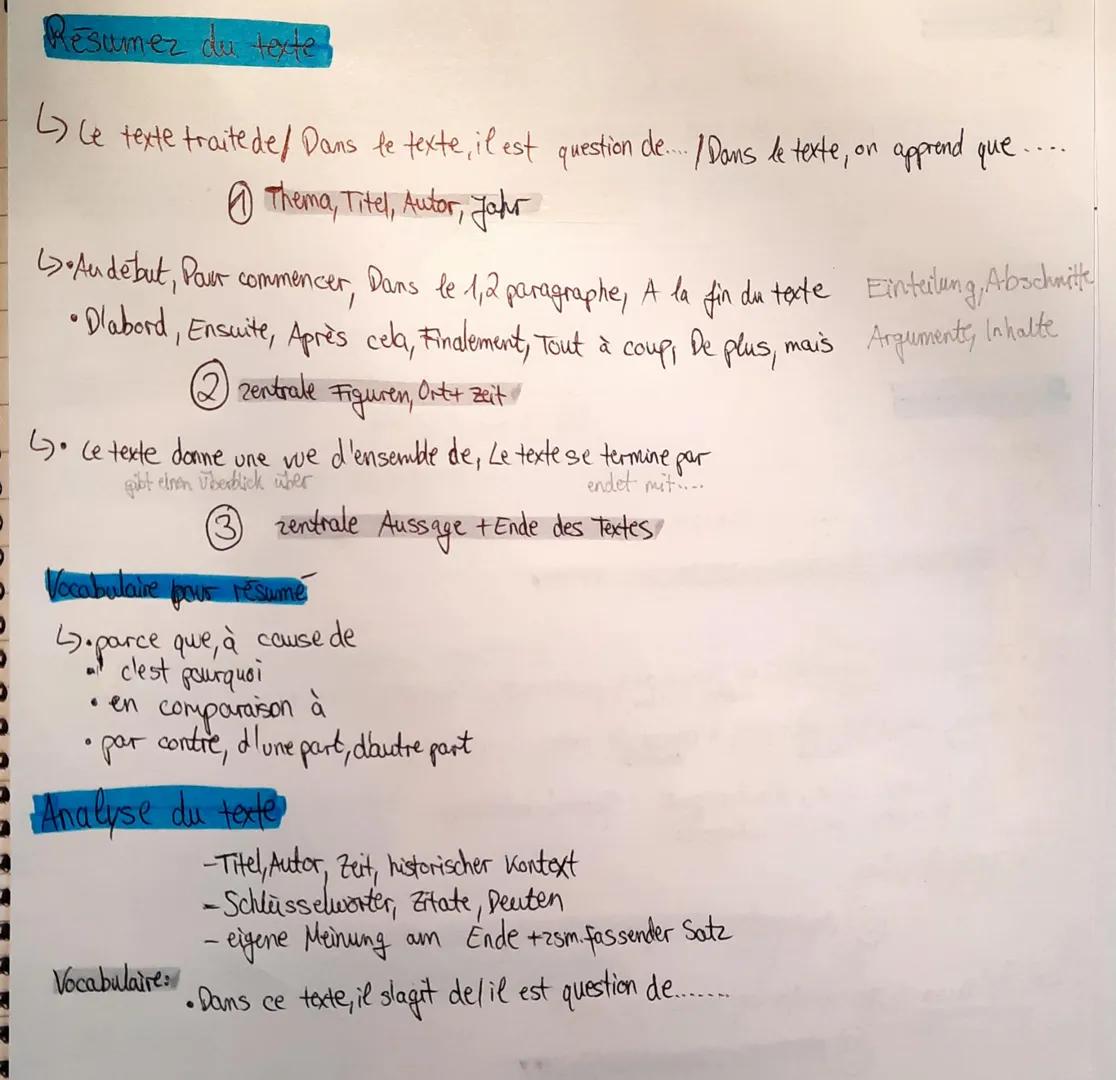 Résumez du texte
↳ Le texte traite de/ Dans le texte, il est question de.... / Dans le texte, on apprend que ....
① Thema, Titel, Autor, Jahr
↳ • Au début, Pour commencer, Dans le 1,2 paragraphe, A la fin du texte Einteilung, Abschnitte
• D'abord, Ensuite, Après cela, Finalement, Tout à coup, De plus, mais Argumente, Inhalte
② zentrale Figuren, Ort + Zeit
↳ • Le texte donne une vue d'ensemble de, Le texte se termine par
gibt einen Überblick über endet mit....
③ zentrale Aussage + Ende des Textes
Vocabulaire pour résumé
↳ • parce que, à cause de
• c'est pourquoi
• en comparaison à
• par contre, d'une part, d'autre part
Analyse du texte
- Titel, Autor, Zeit, historischer Kontext
- Schlüsselwörter, Zitate, Deuten
- eigene Meinung am Ende + zsm.fassender Satz
Vocabulaire:
• Dans ce texte, il s'agit de/ il est question de.......